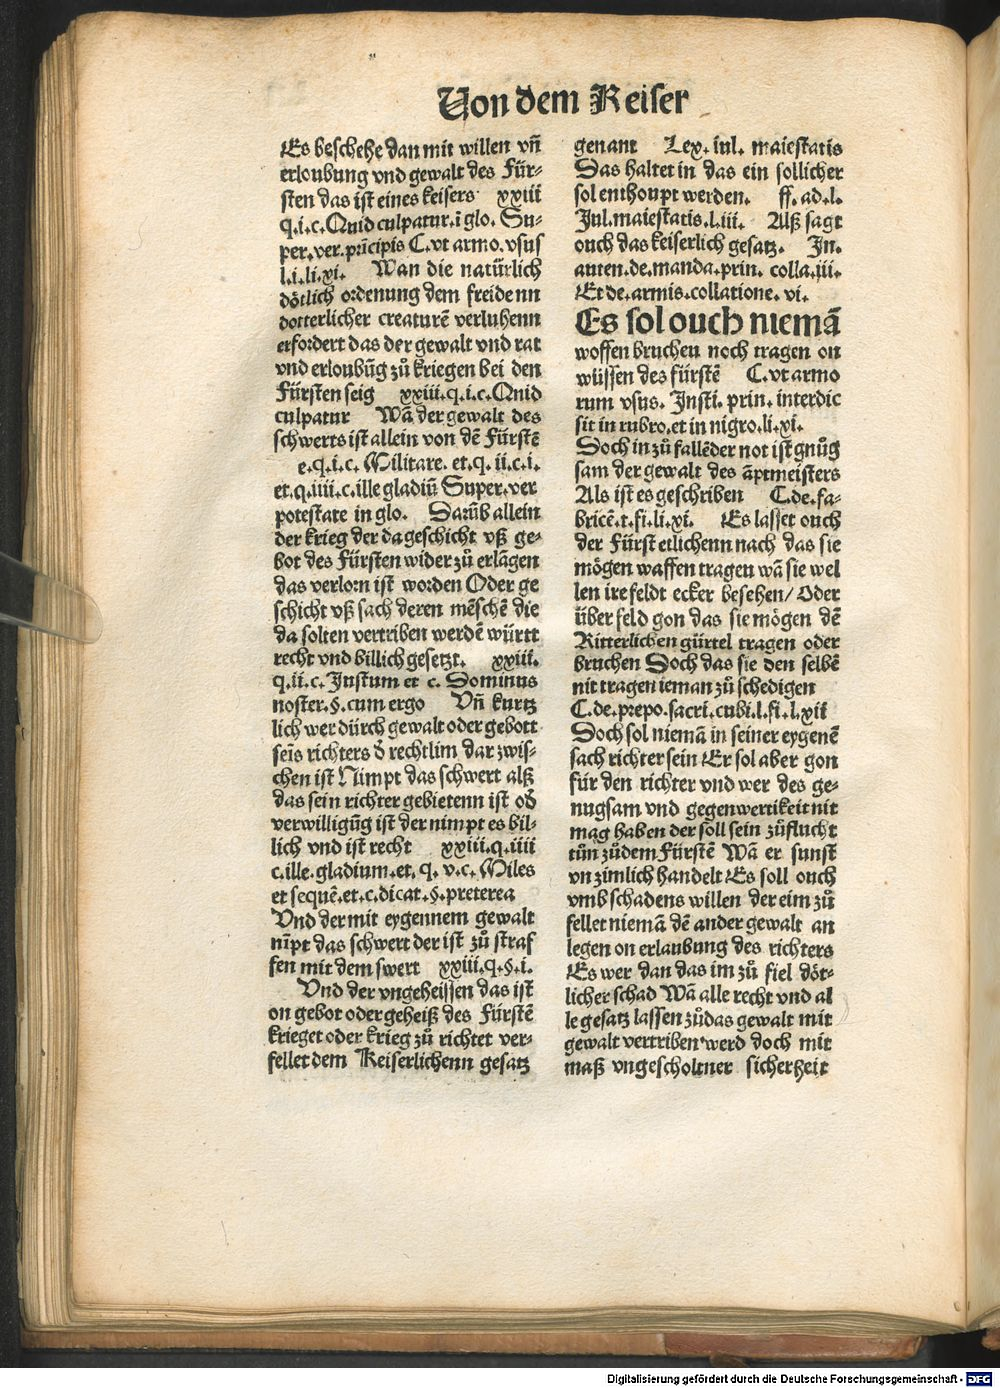 Von dem Keiser
Es beschehe dan mit willen vñ
erloubung vnd gewalt des Für-
sten das ist eines keisers xxiii
q.i.c.Quid culpatur.ī glo. Su-
per.ver.prīcipis C.vt armo.vsus
l.i.li.xi. Wan die natürlich
dötlich ordenung dem freidenn
dotterlicher creaturē verluhenn
erfordert das der gewalt vnd rat
vnd erloubūg zů kriegen bei den
Fürsten seig xxiii.q.i.c.Quid
culpatur Wā der gewalt des
schwerts ist allein von dē Fürstē
e.q.i.c. Militare. et.q. ii.c.i.
et.q.iiii.c.ille gladiū Super.ver
potestate in glo. Darūb allein
der krieg der da geschicht vß ge-
bot des Fürsten wider zů erlāgen
das verlorn ist worden Oder ge
schicht vß sach deren mēschē die
da solten vertriben werdē württ
recht vnd billich gesetzt. xxiii.
q.ii.c. Justum et c. Dominus
noster.§.cum ergo Vñ kurtz
lich wer dürch gewalt oder gebott
seīs richters d̓ rechtlim dar zwis-
chen ist Nimpt das schwert alß
das sein richter gebietenn ist od̓
verwilligūg ist der nimpt es bil-
lich vnd ist recht xxiii.q.iiii
c.ille.gladium.et. q. v.c. Miles
et sequē.et.c.dicat.§.preterea
Vnd der mit eygennem gewalt
nīpt das schwert der ist zů straf
fen mit dem swert xxiii.q.§.i.
Vnd der vngeheissen das ist
on gebot oder geheiß des Fürstē
krieget oder krieg zů richtet ver-
fellet dem Keiserlichenn gesatz
genant Lex. iul. maiestatis
Das haltet in das ein sollicher
sol enthoupt werden. ff. ad.l.
Jul.maiestatis.l.iii. Alß sagt
ouch das keiserlich gesatz. In.
auten.de.manda.prin. colla.iii.
Et de.armis.collatione. vi.
Es sol ouch niemā
woffen bruchen noch tragen on
wüssen des fürstē C.vt armo
rum vsus. Insti. prin. interdic
sit in rubro.et in nigro.li.xi.
Doch in zů fallēder not ist gnůg
sam der gewalt des āptmeisters
Als ist es geschriben C.de.fa-
bricē.t.fi.li.xi. Es lasset ouch
der Fürst etlichenn nach das sie
mögen waffen tragen wā sie wel
len ire feldt ecker besehen/ Oder
über feld gon das sie mögen dē
Ritterlichen gürtel tragen oder
bruchen Doch das sie den selbē
nit tragen ieman zů schedigen
C.de.prepo.sacri.cubi.l.fi.l.xii
Doch sol niemā in seiner eygenē
sach richter sein Er sol aber gon
für den richter vnd wer des ge-
nugsam vnd gegenwertikeit nit
mag haben der soll sein zůflucht
tůn zůdem Fürstē Wā er sunst
vnzimlich handelt Es soll ouch
vmb schadens willen der eim zů
fellet niemā dē ander gewalt an
legen on erlaubung des richters
Es wer dan das im zů fiel döt-
licher schad Wā alle recht vnd al
le gesatz lassen zůdas gewalt mit
gewalt vertriben werd doch mit
maß vngescholtner sicherheit
Digitalisierung gefördert durch die Deutsche Forschungsgemeinschaft - DFG